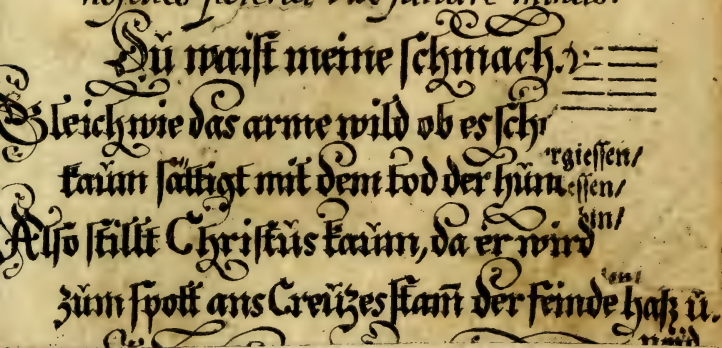 Dŭ waist meine schmach.
Gleich wie das arme wild ob es sch
rgiessen/
kaŭm sättigt mit dem tod der hŭn
essen/
Also stillt Christŭs kaŭm, da er wird
zŭm spott ans Creŭtzes stam̄ der feinde haß ŭ.